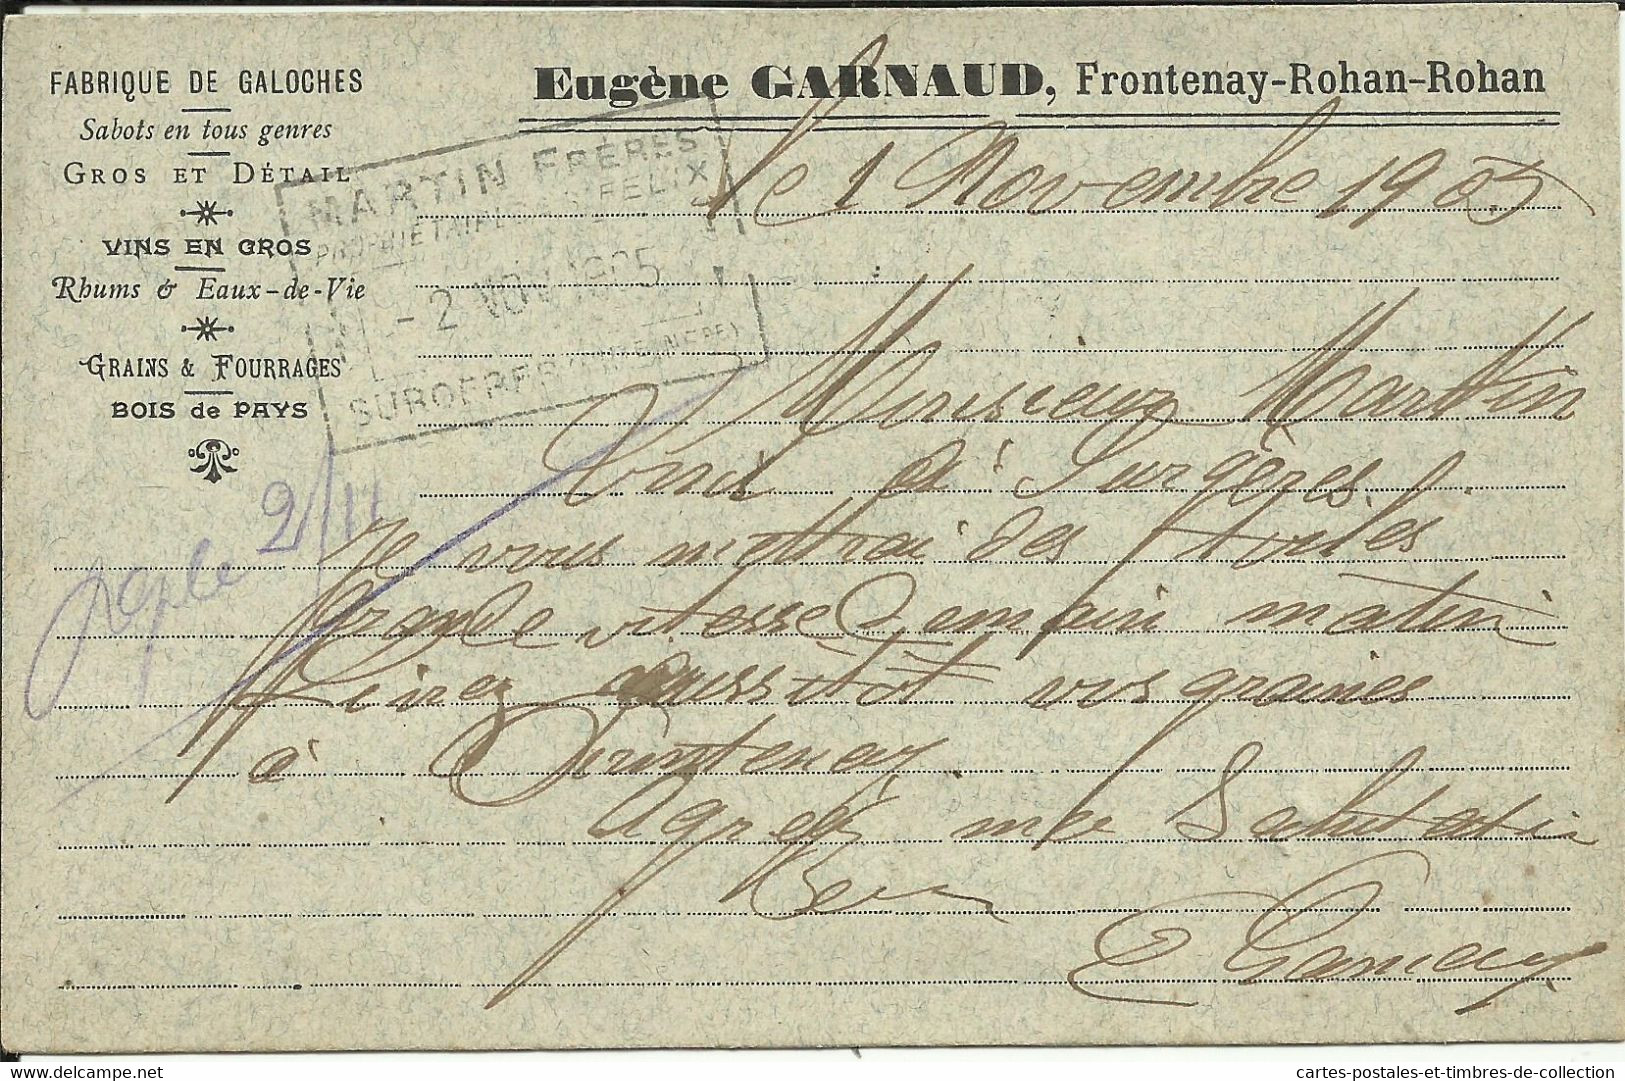 FABRIQUE DE GALOCHES
Sabots en tous genres
GROS ET DÉTAIL
VINS EN GROS
Rhums & Eaux-de-Vie
GRAINS & FOURRAGES
BOIS de PAYS
Eugène GARNAUD, Frontenay-Rohan-Rohan
MARTIN FRÈRES
PROPRIÉTAIRES ST FELIX
- 2 NOV 1905
SURGERES
le 1 Novembre 1905
Messieurs Martin
à Surgères.
2/11
Je vous mettrai des toiles
Grande vitesse Demain matin
Livrez aussitôt vos graines
à Frontenay.
Agréez mes Salutation
E Garnaud
cartes-postales-et-timbres-de-collection